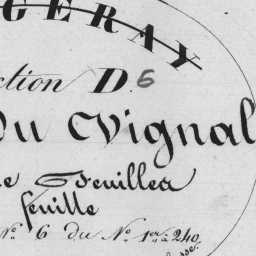 GERAY
ction D. 6
Du Vignal
e Feuilles
feuille
N.º 6 du N.º 1.er à 240.